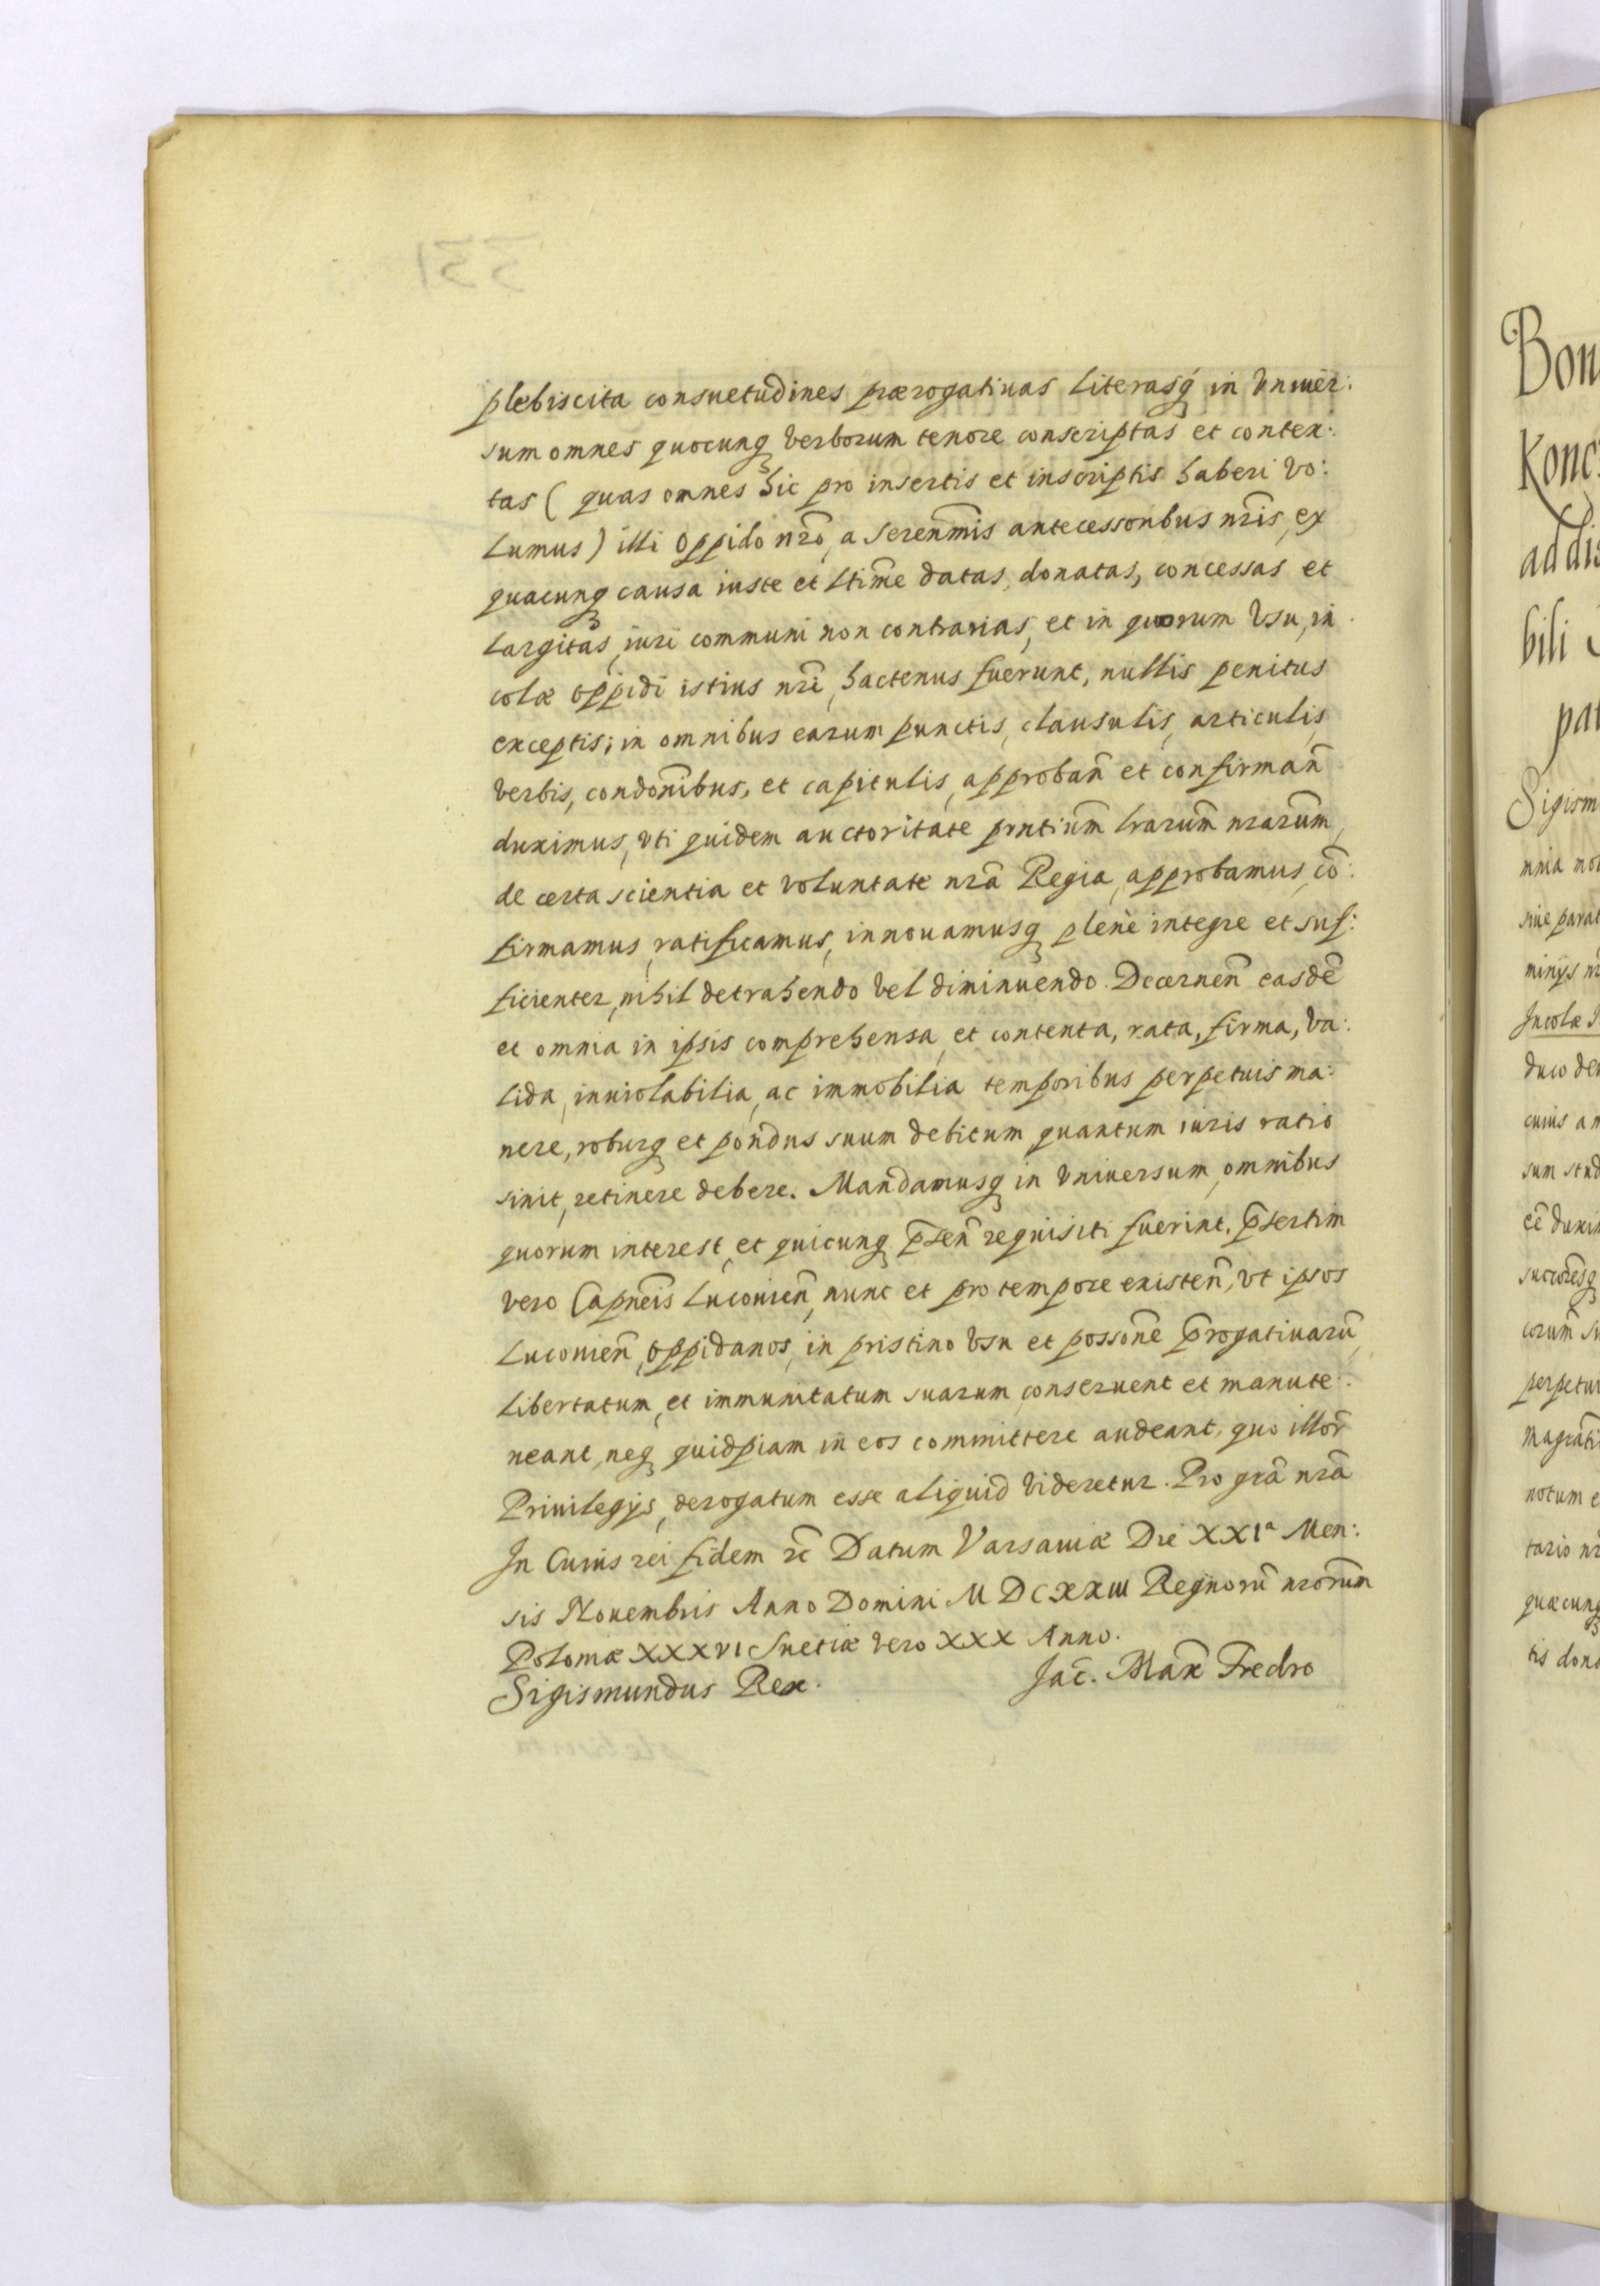 plebiscita consuetudines prærogatiuas literasq́ in Vniuer:
sum omnes quocunq verborum tenore conscriptas et contex:
tas ( quas omnes hic pro insertis et inscriptis haberi vo:
lumus ) illi oppido nrō, a Serenm̄is antecessoribus nrīs, ex
quacunq causa iuste et ltim̄e datas, donatas, concessas et
largitas, iuri communi non contrarias, et in quorum Vsu, in
colæ oppidi istius nrī, hactenus fuerunt, nullis penitus
exceptis; in omnibus earum punctis, clausulis, articulis,
verbis, condōnibus, et capitulis, approban̄ et confirman̄
duximus, vti quidem auctoritate prntiūm lrarūm nrarūm,
de certa scientia et voluntate nrā Regia, approbamus, cō:
firmamus, ratificamus, innouamusq plenè integre et suf:
ficienter, nihil detrahendo vel diminuendo. Decernen̄ easdē
et omnia in ipsis comprehensa, et contenta, rata, firma, va:
lida, inuiolabilia, ac immobilia temporibus perpetuis ma:
nere, roburq et pondus suum debitum quantum iuris ratio
sinit, retinere debere. Mandamusq in Vniuersum, omnibus
quorum interest, et quicunq p̄sen̄ requisiti fuerint. p̄sertim
vero Capnēis Luconien̄, nunc et pro tempore existen̄, vt ipsos
Luconien̄, oppidanos, in pristino Vsu et possōne p̄rogatiuarū,
libertatum, et immunitatum suarum, conseruent et manute:
neant, neq quidpiam in eos committere audeant, quo illor̄
Priuilegijs, derogatum esse aliquid videretur. Pro grā nrā
In Cuius rei fidem &c̄ Datum Varsauiæ Die XXIª Men:
sis Nouembris Anno Domini MDCXXIII Regnorū nrorūm
Poloniæ XXXVI Suetiæ vero XXX Anno.
Sigismundus Rex. Jac̄. Max̄ Fredro
Bon
Konc
ad dis
bili
pat
Sigism
nnia not
siue parat
minijs nr
Incolæ
duco de
cuius a
sum stud
cē duxi
succōresq
corūm su
perpetu
Magrāti
notum e
tario nr
quæcunq
tis dona